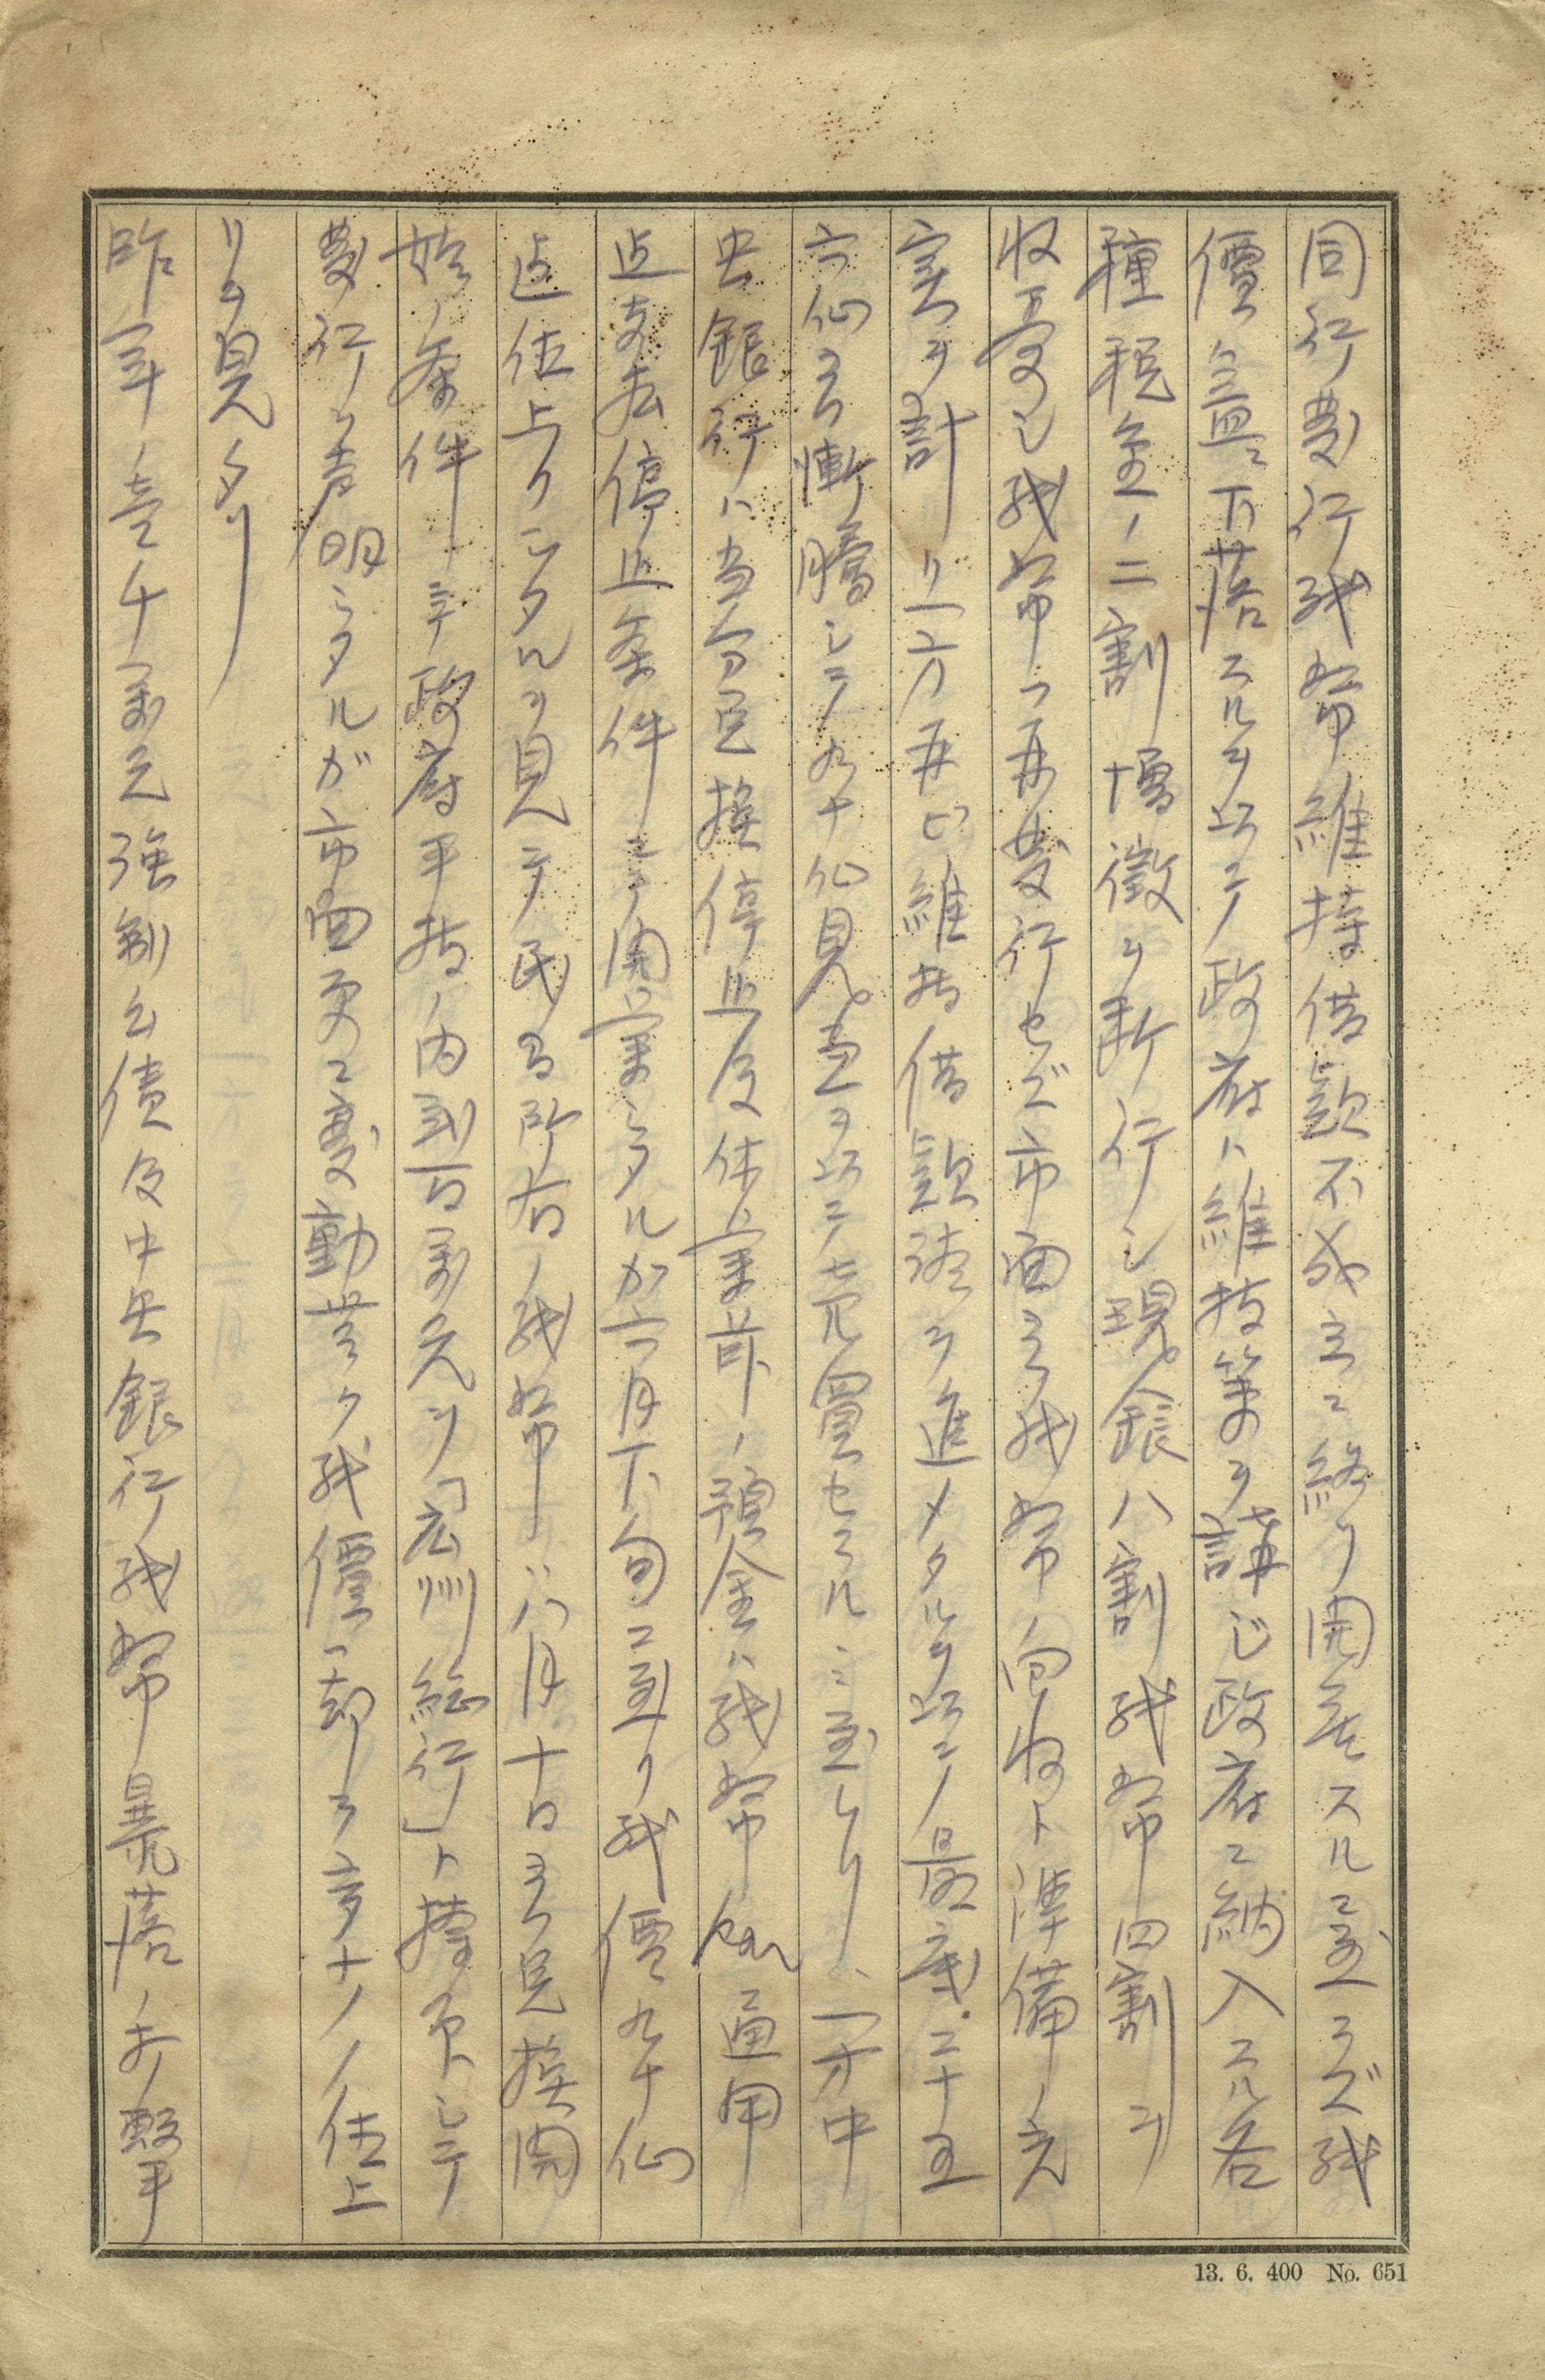 同行発行紙幣維持借款不成立ニ終リ開業スルニ至ラズ紙
價益々下落スルヲ以テ政府ハ維持策ヲ講ジ政府ニ納入スル各
種税金ノ二割増徴ヲ断行シ現銀八割紙幣四割ヲ
收受シ紙幣ハ再発行セズ市面ニ紙幣ノ回收ト準備ノ充
実ヲ計リ一方再ビ維持借款談ヲ進メタルヲ以テ最底二十五
六仙ヨリ漸騰シテ九十仙見當ヲ以テ売買セラルニ至レリ、一方中
央銀行ハ当分兌換停止及休業前ノ預金ハ紙幣 通用
迄支払停止条件ニテ開業シタルガ六月下旬ニ至リ紙價九十仙
迄仕上リシタルヲ見テ民 所有ノ紙幣ハ八月十日ヨリ兌換開
始ノ条件ニテ政府手持ノ内弐百萬元ヲ「広州総行」ト捺印シテ
発行ヲ声明シタルガ市面更ニ変動無ク紙價ハ却ヲ多少ノ仕上
リヲ見タリ
昨年ノ壱千萬元強制公債及中央銀行紙幣暴落ノ打撃
13. 6. 400 No. 651